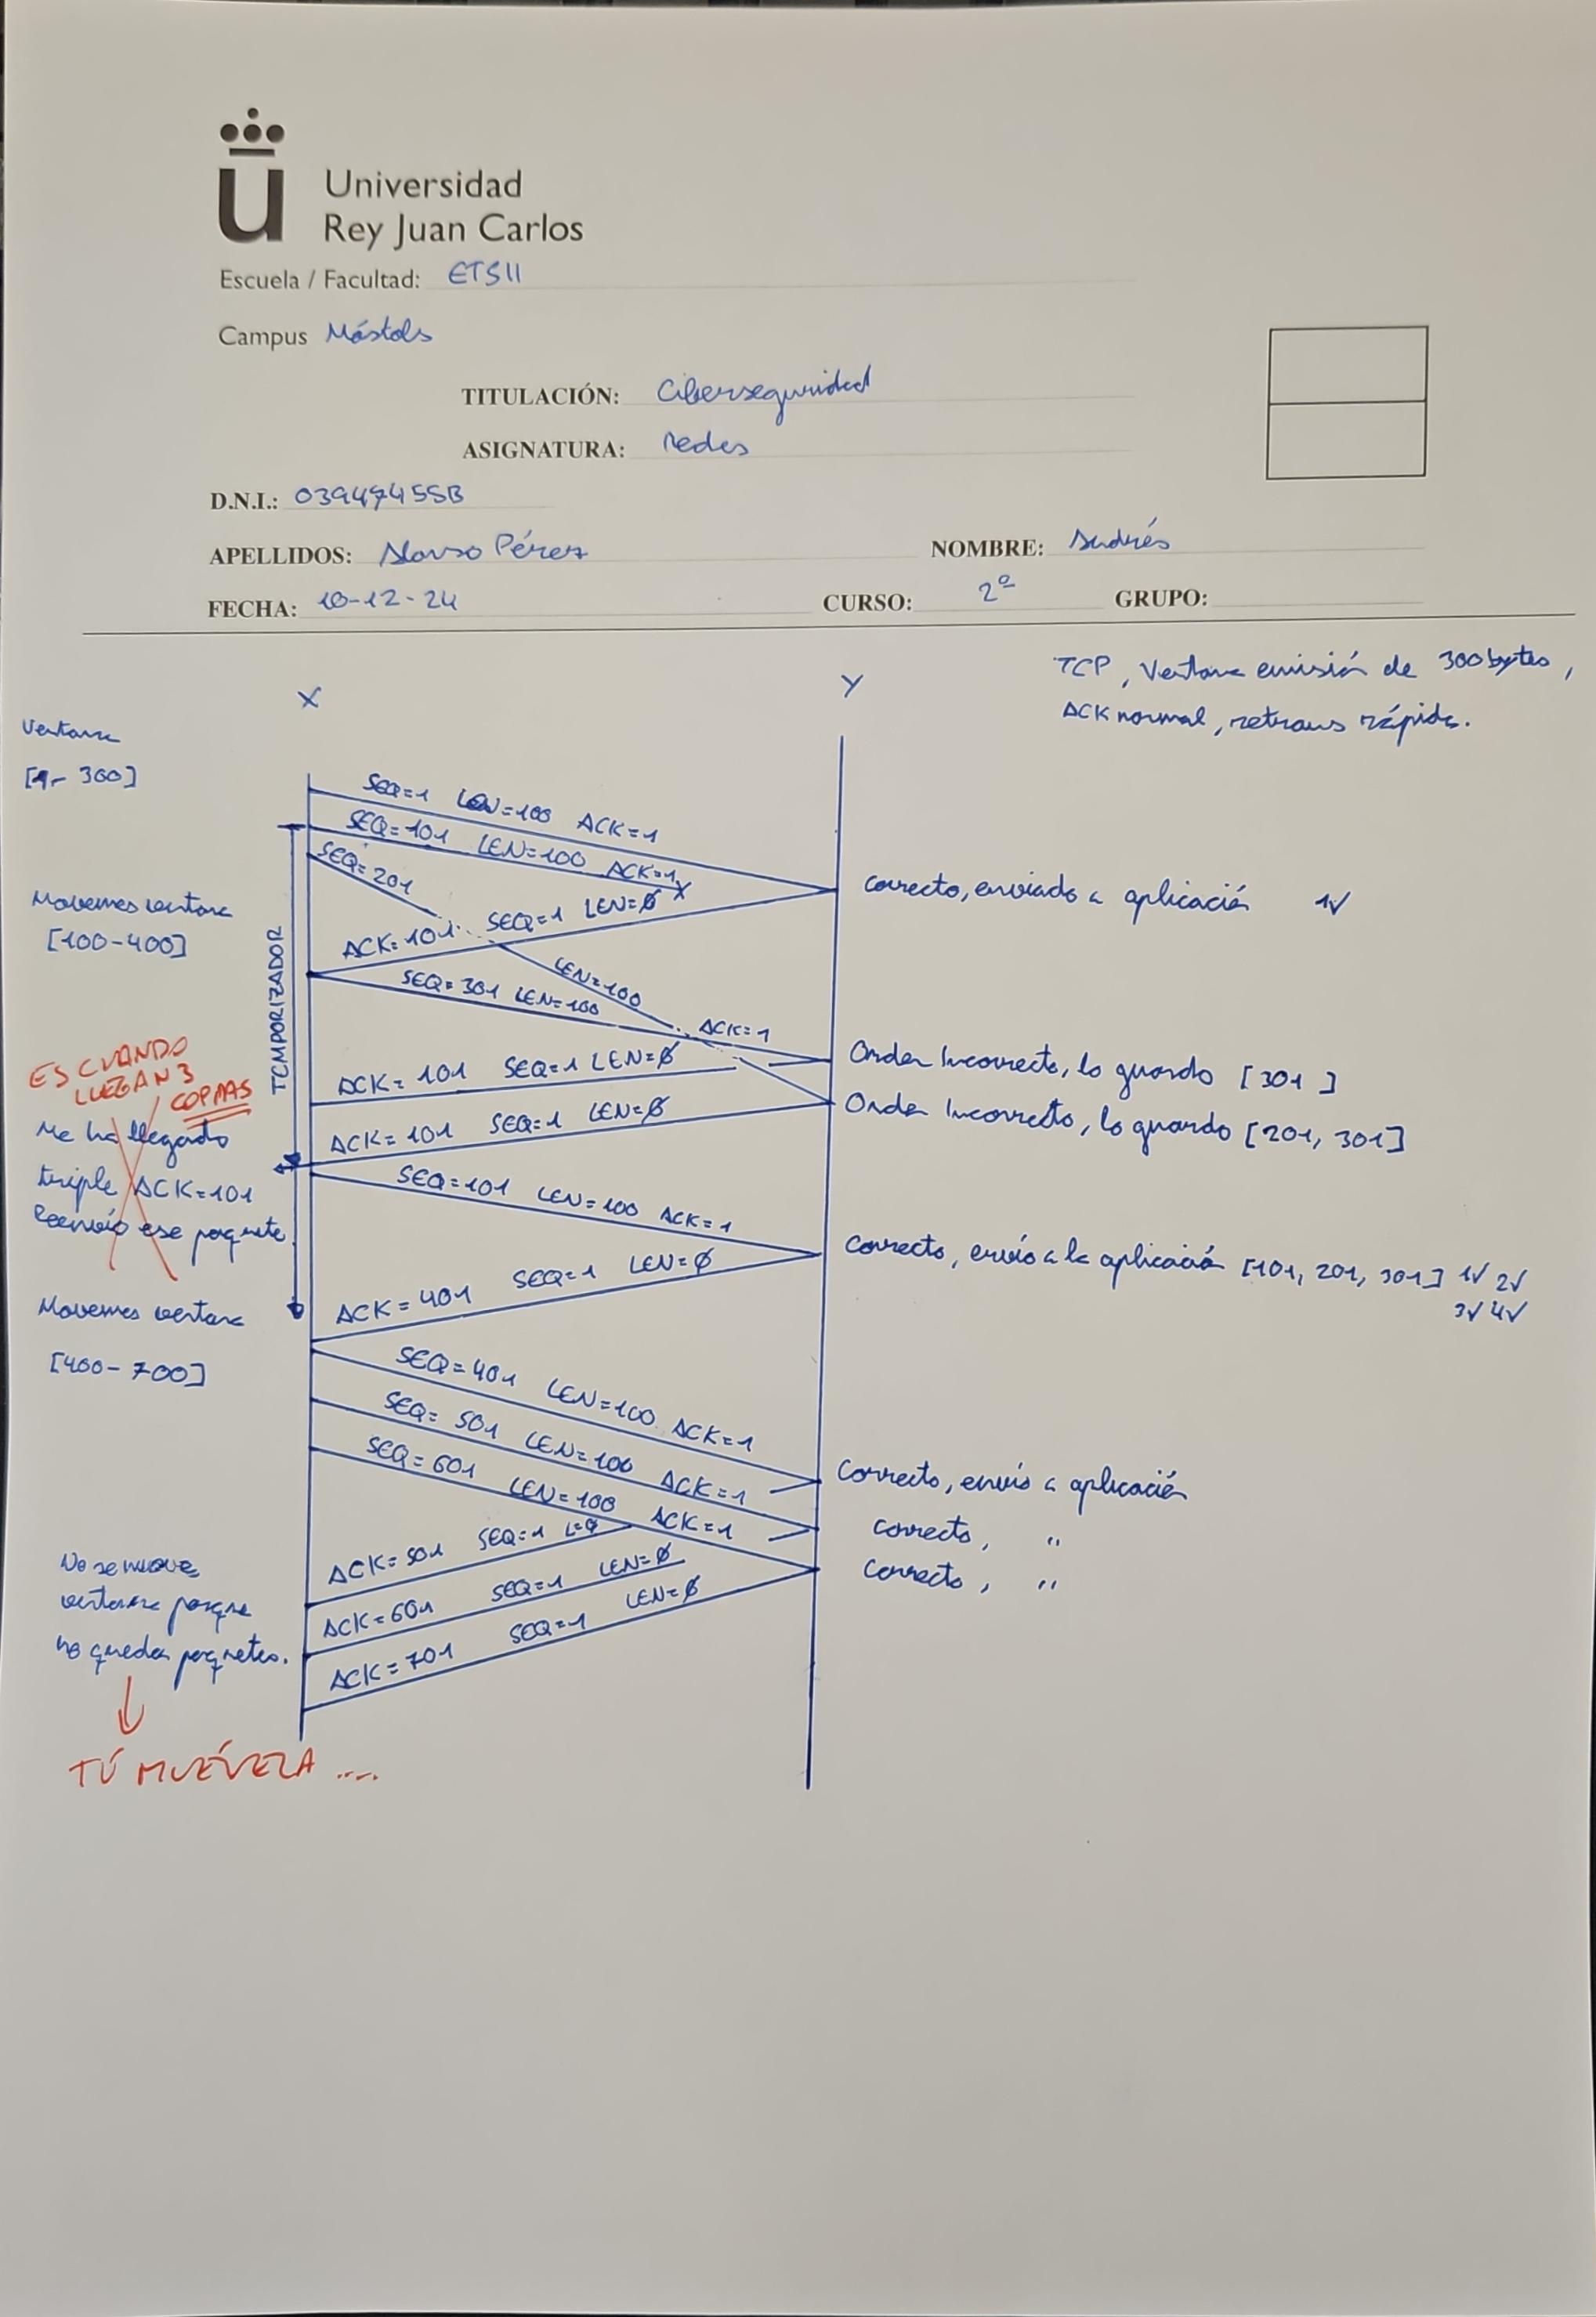 Universidad
Rey Juan Carlos
Escuela / Facultad: ETSII
Campus Móstols
TITULACIÓN: Ciberseguridad
ASIGNATURA: redes
D.N.I.: 03947455B
APELLIDOS: Alonso Pérez NOMBRE: Andrés
FECHA: 10-12-24 CURSO: 2º GRUPO:
TCP, Ventana emisión de 300 bytes,
ACK normal, retrans rápida.
X Y
Ventana
[1- 300]
SEQ=1 LEN=100 ACK=1
SEQ=101 LEN=100 ACK=1 X
SEQ=201 LEN=100 ACK=1
Correcto, enviado a aplicación 1✓
ACK=101 SEQ=1 LEN=0
Movemos ventana
[100-400]
SEQ=301 LEN=100
TEMPORIZADOR
Orden Incorrecto, lo guardo [301]
ACK=101 SEQ=1 LEN=0
Orden Incorrecto, lo guardo [201, 301]
ACK=101 SEQ=1 LEN=0
ES CUANDO
LLEGAN 3
COPIAS
Me ha llegado
triple ACK=101
Reenvío ese paquete.
SEQ=101 LEN=100 ACK=1
Correcto, envío a la aplicación [101, 201, 301] 1✓ 2✓
3✓ 4✓
ACK=401 SEQ=1 LEN=0
Movemos ventana
[400-700]
SEQ=401 LEN=100 ACK=1
SEQ=501 LEN=100 ACK=1
SEQ=601 LEN=100 ACK=1
Correcto, envío a aplicación
Correcto, "
Correcto, "
ACK=501 SEQ=1 L=0
ACK=601 SEQ=1 LEN=0
ACK=701 SEQ=1 LEN=0
No se mueve
ventana porque
no quedan paquetes.
TÚ MUÉVELA ....